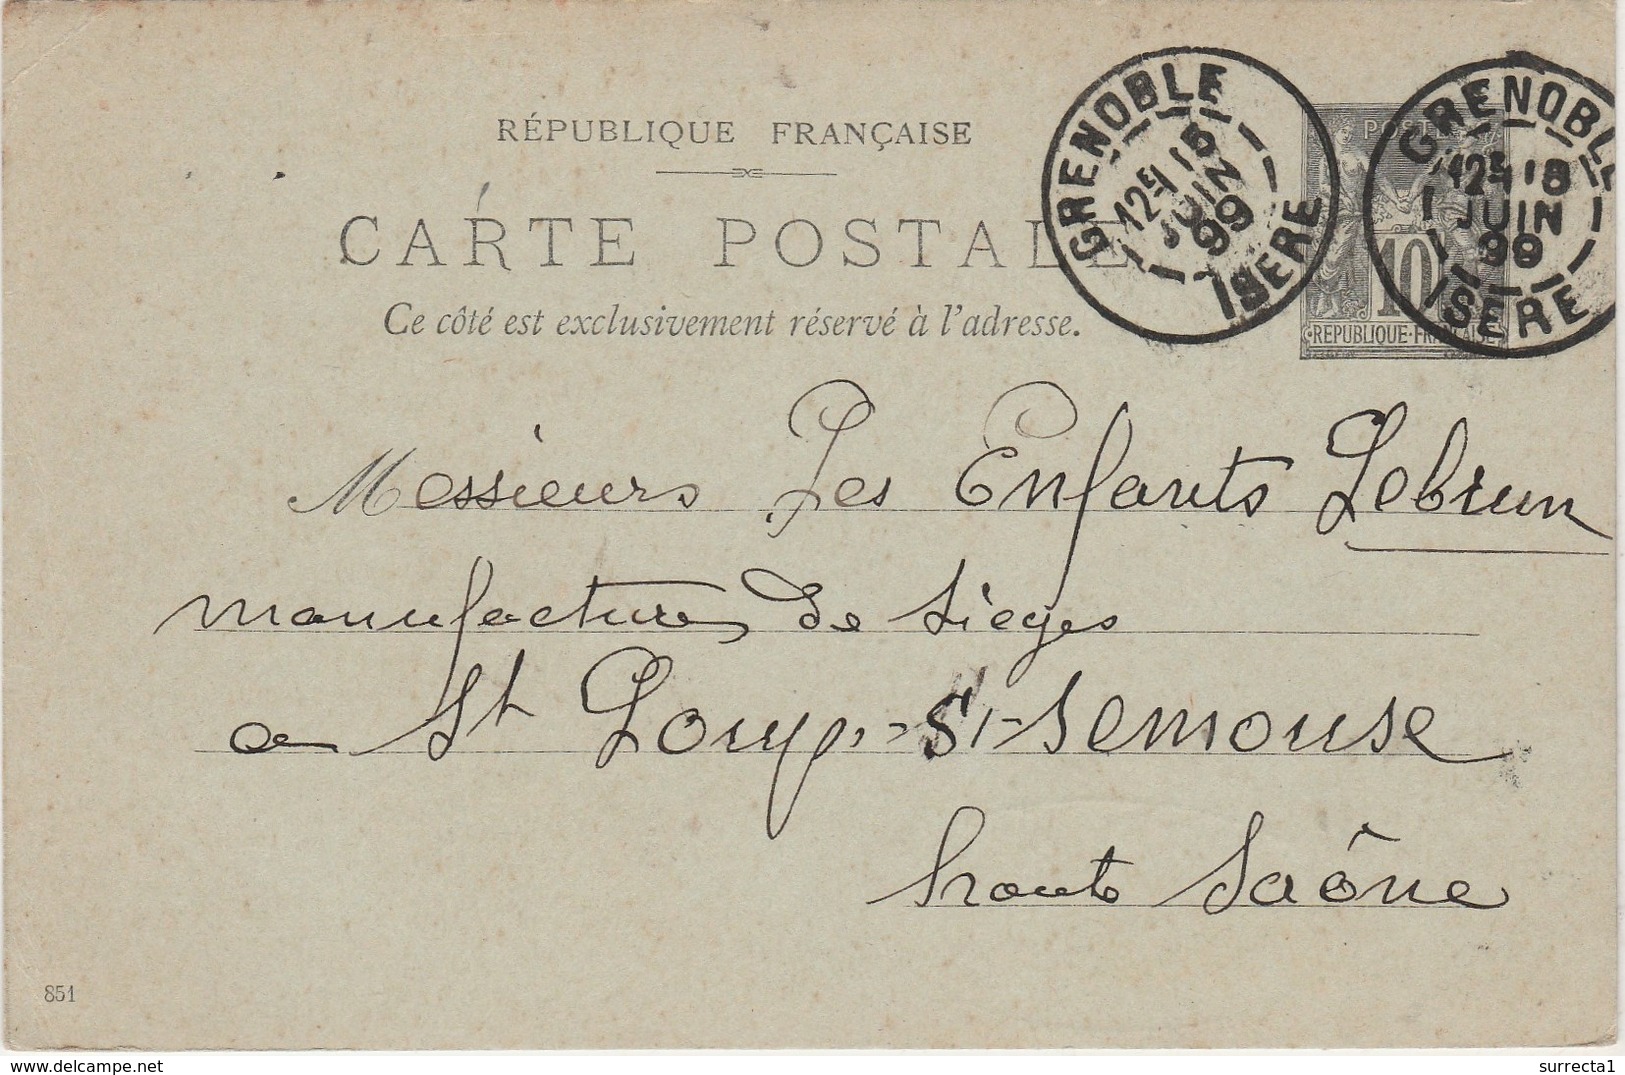 RÉPUBLIQUE FRANÇAISE
CARTE POSTALE
Ce côté est exclusivement réservé à l'adresse.
GRENOBLE
JUIN
99
ISERE
GRENOBLE
JUIN
99
ISERE
POSTES
10
REPUBLIQUE·FRANÇAISE
Messieurs Les Enfants Lebrun
manufacture de Sièges
a St Loup-S/-Semouse
haute Saône
851
delcampe.net
surrecta1